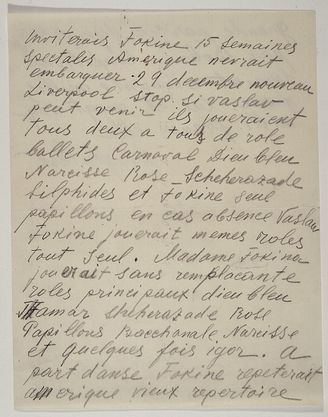 Inviterais Fokine 15 semaines
spectales Amerique nevrait
embarquer 29 decembre nouveau
Liverpool stop. si vaslav
peut venir ils joueraient
tous deux a tour de role
ballets Carnaval Dieu bleu
Narcisse Rose Scheherazade
Silphides et Fokine seul
papillons en cas absence Vaslav
Fokine jouerait memes roles
tout seul. Madame Fokina
jouerait sans remplacante
roles principaux dieu bleu
Thamar Scheherazade Rose
Papillons Bacchanale Narcisse
et quelques fois igor. a
part danse Fokine repeterait
amerique vieux repertoire